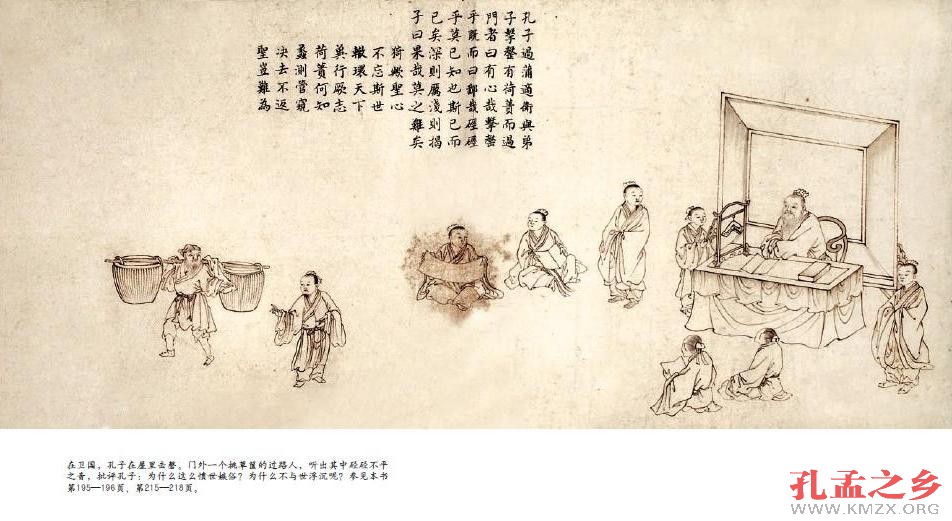 孔子過蒲適衛與弟
子擊磬有荷蕢而過
門者曰有心哉擊磬
乎既而曰鄙哉硜硜
乎莫已知也斯已而
已矣深則厲淺則揭
子曰果哉莫之難矣
猗歟聖心
不忘斯世
轍環天下
冀行厥志
荷蕢何知
蠡測管窺
决去不返
聖豈難為
在卫国，孔子在屋里击磬。门外一个挑草筐的过路人，听出其中硁硁不平
之音，批评孔子：为什么这么愤世嫉俗？为什么不与世浮沉呢？参见本书
第195—196页、第215—218页。
孔孟之乡
WWW.KMZX.ORG